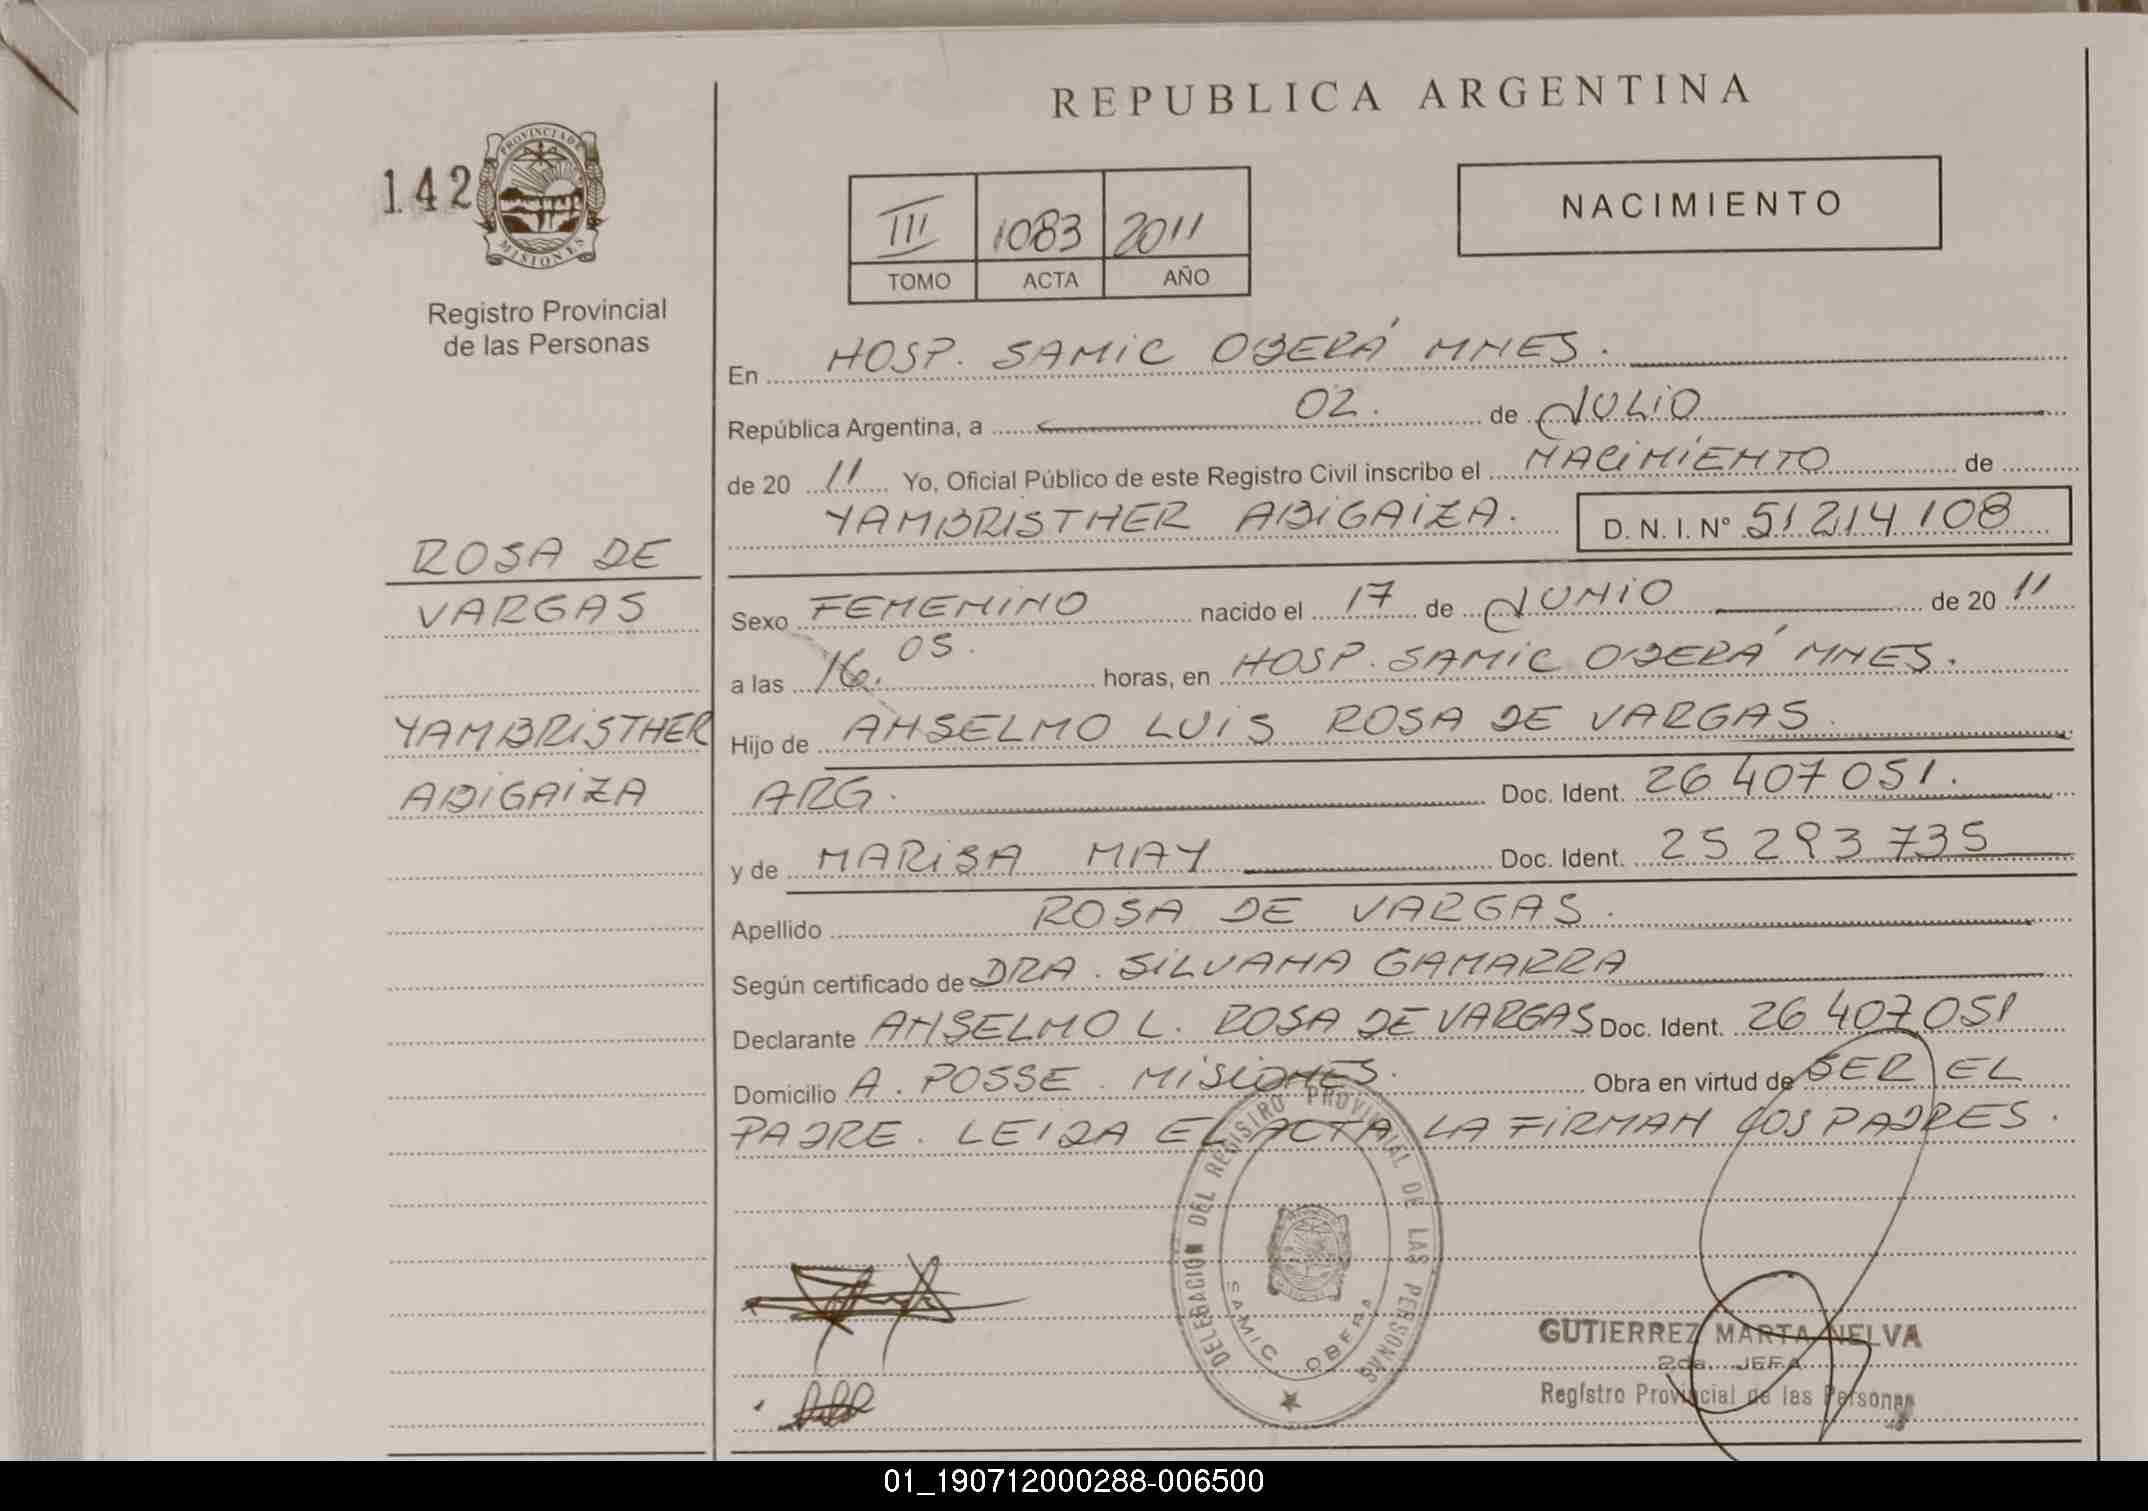 REPUBLICA ARGENTINA
142
PROVINCIA DE MISIONES
Registro Provincial
de las Personas
III 1083 2011
TOMO ACTA AÑO
NACIMIENTO
En HOSP. SAMIC OBERÁ MNES.
República Argentina, a 02. de JULIO
de 20 11 Yo, Oficial Público de este Registro Civil inscribo el NACIMIENTO de
YAMBRISTHER ABIGAIZA. D. N. I. N° 51.214.108
ROSA DE
VARGAS
YAMBRISTHER
ABIGAIZA
Sexo FEMENINO nacido el 17 de JUNIO de 20 11
a las 16.05. horas, en HOSP. SAMIC OBERÁ MNES.
Hijo de ANSELMO LUIS ROSA DE VARGAS.
ARG. Doc. Ident. 26 407 051.
y de MARISA MAY Doc. Ident. 25 293 735
Apellido ROSA DE VARGAS.
Según certificado de DRA. SILVANA GAMARRA
Declarante ANSELMO L. ROSA DE VARGAS Doc. Ident. 26 407 051
Domicilio A. POSSE. MISIONES. Obra en virtud de SER EL
PADRE. LEIDA EL ACTA LA FIRMAN LOS PADRES.
DELEGACION DEL REGISTRO PROVINCIAL DE LAS PERSONAS
SAMIC OBERA
GUTIERREZ MARTA NELVA
2da. JEFA
Registro Provincial de las Personas
01_190712000288-006500